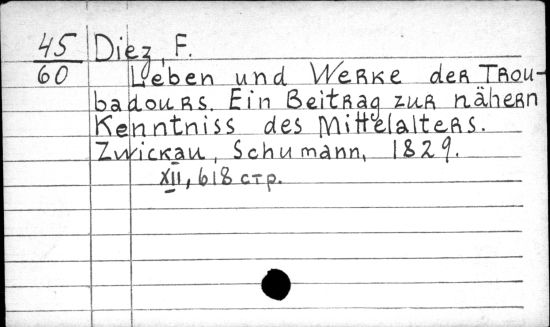 45
60
Diez, F.
Leben und Werke der Trou-
badours. Ein Beitrag zur nähern
Kenntniss des Mittelalters.
Zwickau, Schumann, 1829.
XII, 618 стр.